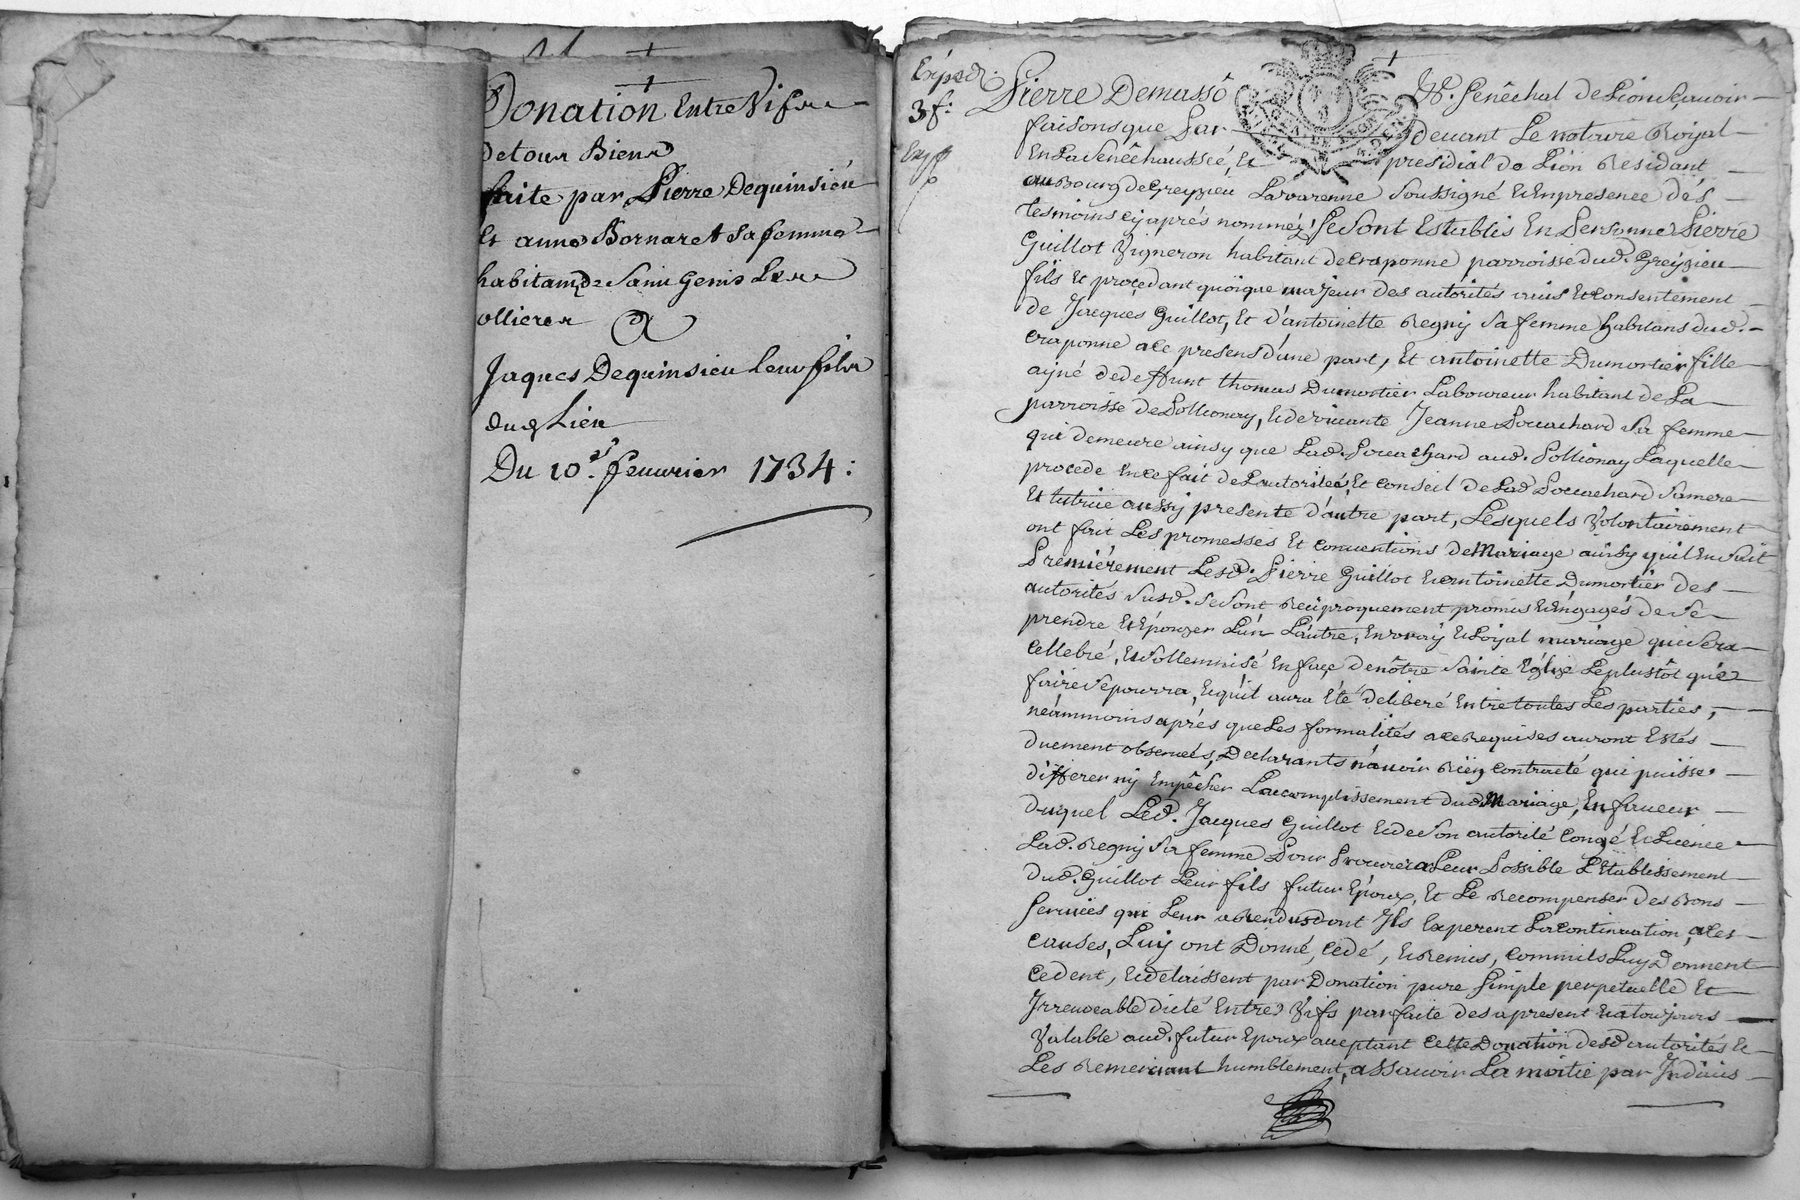 Donation Entre Vifs
de tous Biens
faite par Pierre Dequinsieu
Et anne Bornaret sa femme
habitans de Saint Genis Les
ollieres A
Jaques Dequinsieu leur fils
dud lieu
Du 10e. feuvrier 1734 :
Expedr.
3 f:
Exp
Pierre Demasso Sgr. Senêchal de Lion sçavoir
faisons que Par devant Le notaire Roijal
En La Senêchaussée, Et presidial de Lion Residant
au Bourg de Greyzieu Lavarenne soussigné Et En presence dés
tesmoins cy aprés nomméz Se sont Establis En Personne Pierre
Guillot Vigneron habitant de Craponne parroisse dud. Greyzieu
fils Et procedant quoique majeur des autorités avis Et consentement
de Jacques Guillot, Et d'antoinette Regny sa femme habitans dud.
Craponne a ce presens d'une part, Et antoinette Dumortier fille
ainé de deffunt thomas Dumortier Laboureur habitant de La
parroisse de Pollionay, Et de vivante Jeanne Bouchard sa femme
qui demeure ainsy que Lad. Bouchard aud. Pollionay Laquelle
procede En ce fait de L'autorité, Et conseil de Lad Bouchard sa mere
Et tutrice aussy presente d'autre part, Lesquels Volontairement
ont fait Les promesses Et conventions de Mariage ainsy quil En suit
Premiérement Lesd. Pierre Guillot Et antoinette Dumortier des
autorités susd. se sont Reciproquement promis Et Engagés de se
prendre Et Epouzer L'un L'autre, En vray Et Loijal mariage qui sera
Cellebré, Et sollemnisé En façe de nôtre sainte Eglize Le plustôt que
faire se pourra, Et qu'il aura Eté deliberé Entre toutes Les parties,
neammoins aprés que Les formalités a ce Requises auront Estés
duement observeés, Declarants n'avoir Rien contracté qui puisse
differer ny Empêcher L'accomplissement dud. Mariage, En faveur
duquel Led. Jacques Guillot Et de son autorité Congé Et Licence
Lad. Regny sa femme Pour Procurer a Leur Possible L'Etablissement
dud. Guillot Leur fils futur Epoux, Et Le Recompenser des Bons
services qui Leur a Rendus dont Ils Esperent La continuation, a ces
causes, Luy ont Donné, cedé, Et Remis, comm' ils Luy Donnent
Cedent, Et delaissent par Donation pure simple perpetuelle Et
Irrevocable dicte Entre Vifs parfaite des a present Et a toujours
Valable aud. futur Epoux acceptant Cette Donation desd autorités Et
Les Remerciant humblement, assavoir La moitié par Indivis